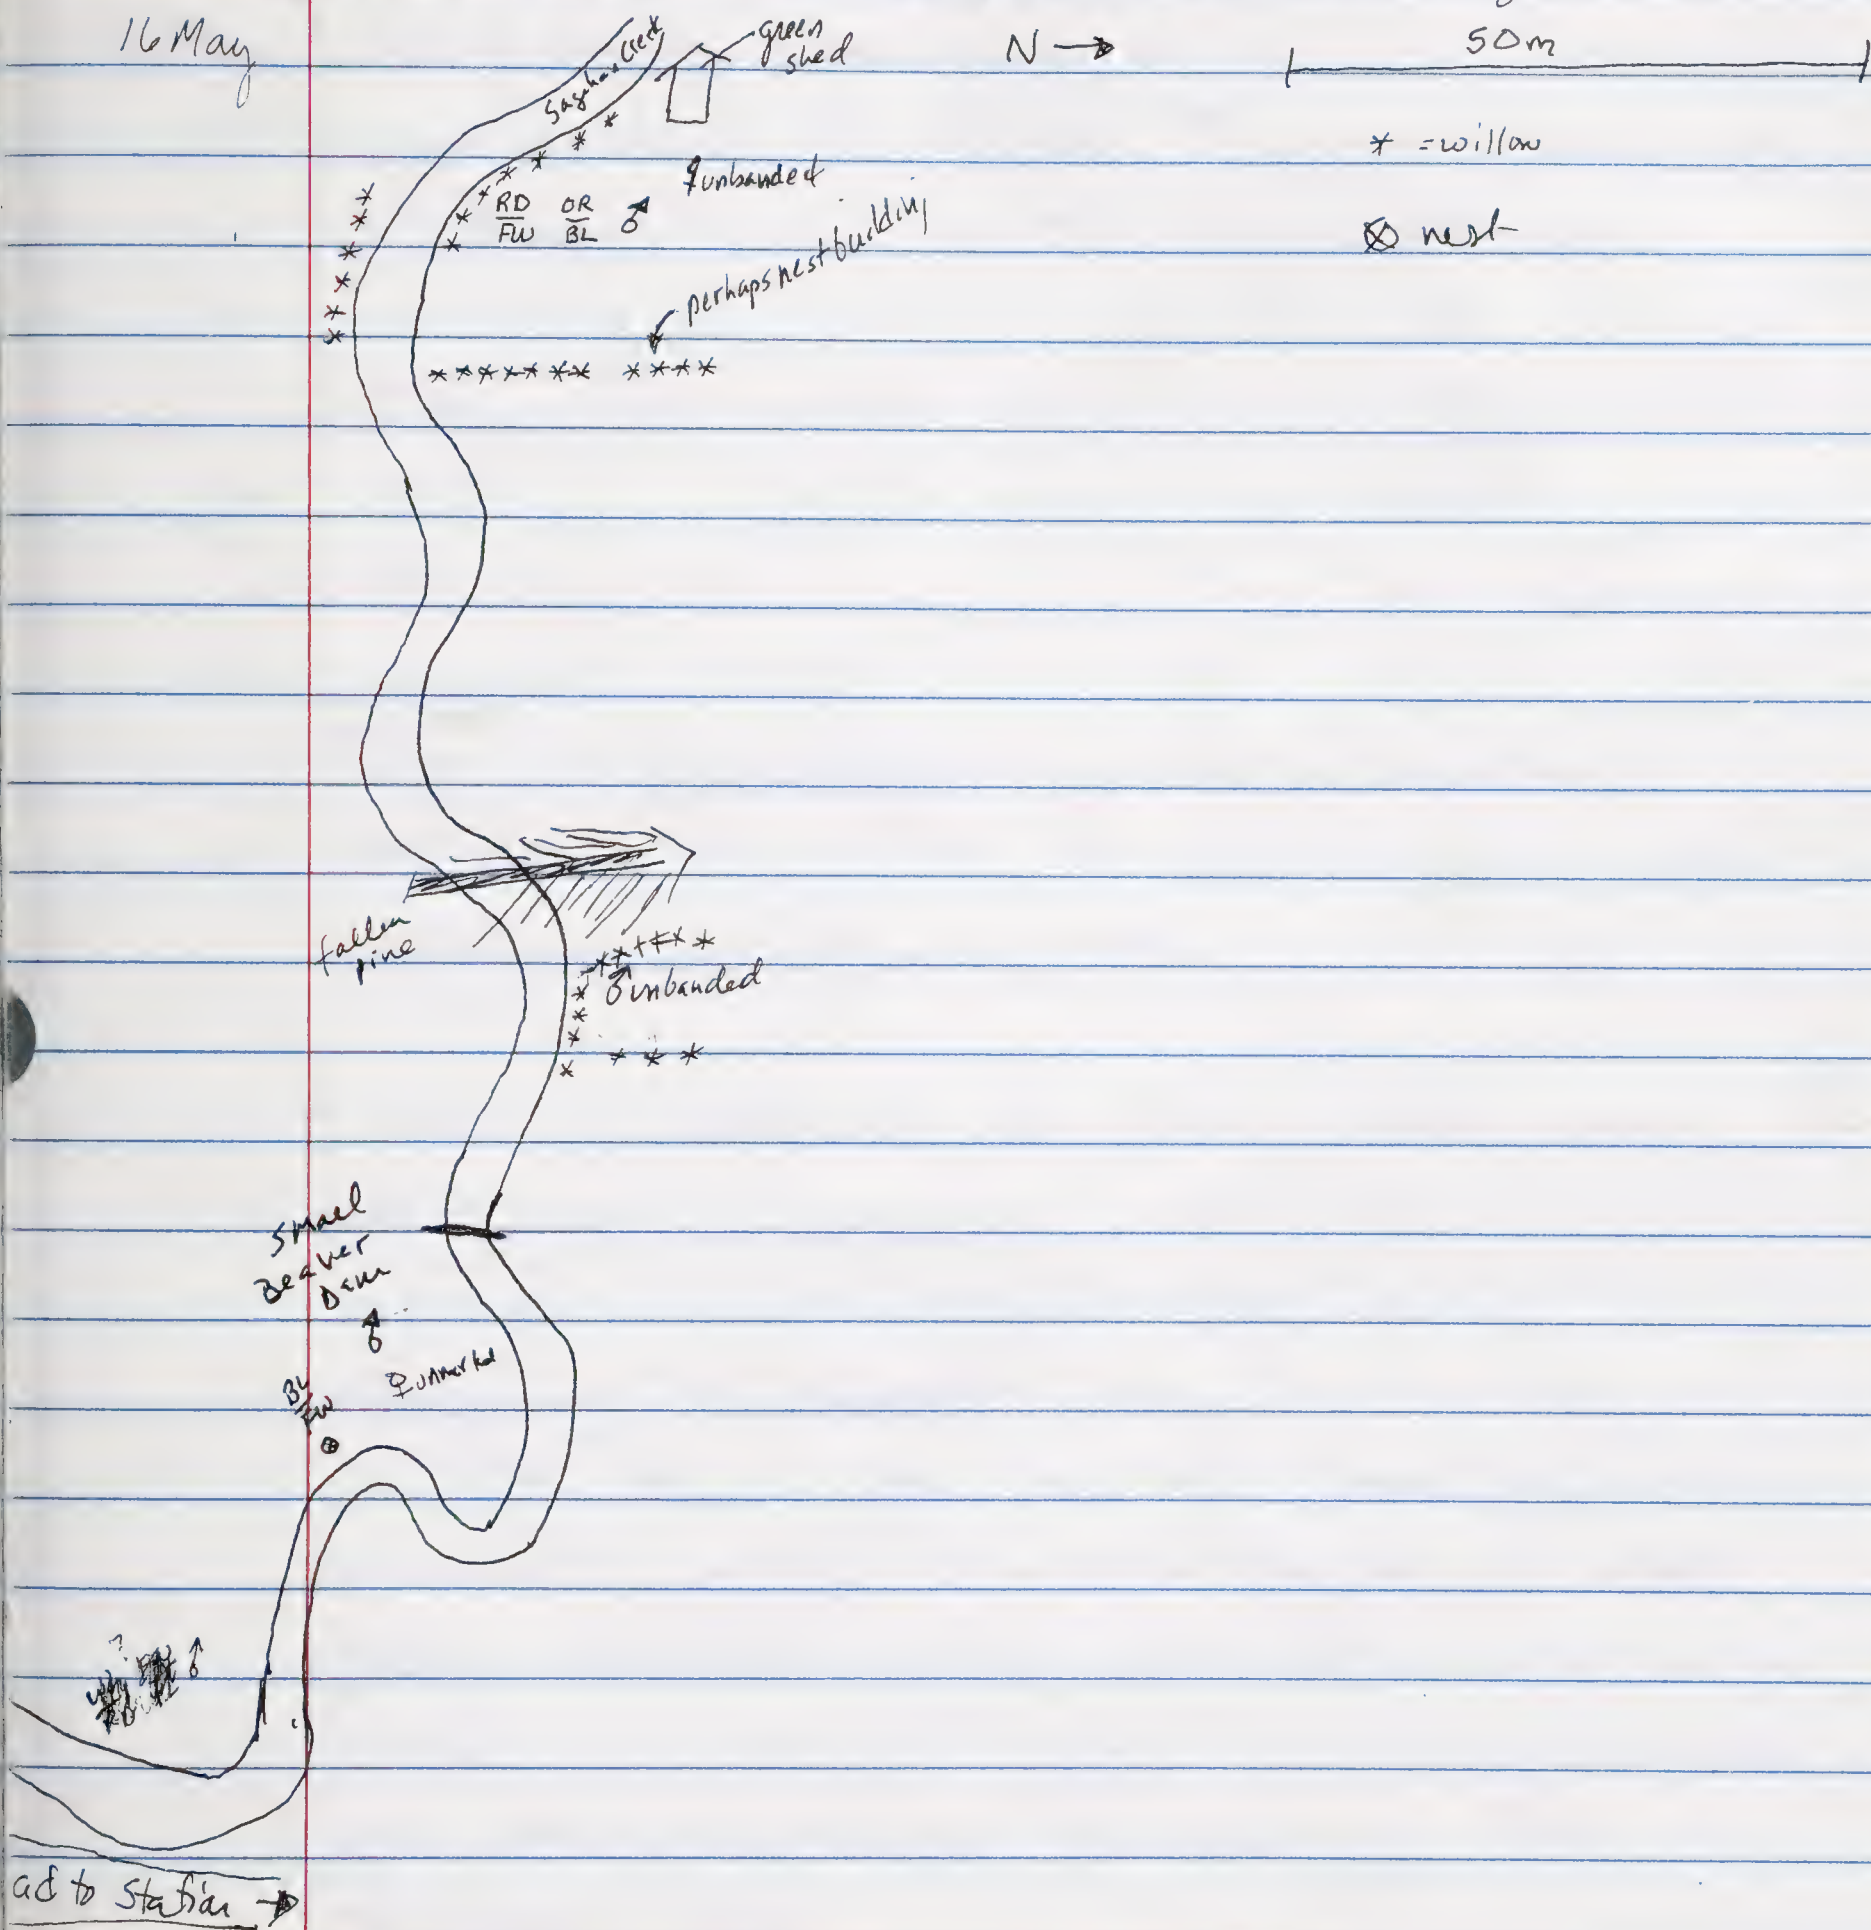 16 May
Sagehen Creek
green
shed
N →
50m
* = willow
⊗ nest
♀ unbanded
RD OR ♂
FW BL
perhaps nest building
fallen
pine
♂ unbanded
Small
Beaver
Dam
♂
♀ unmarked
BL
FW
? ♂
ad to Station →